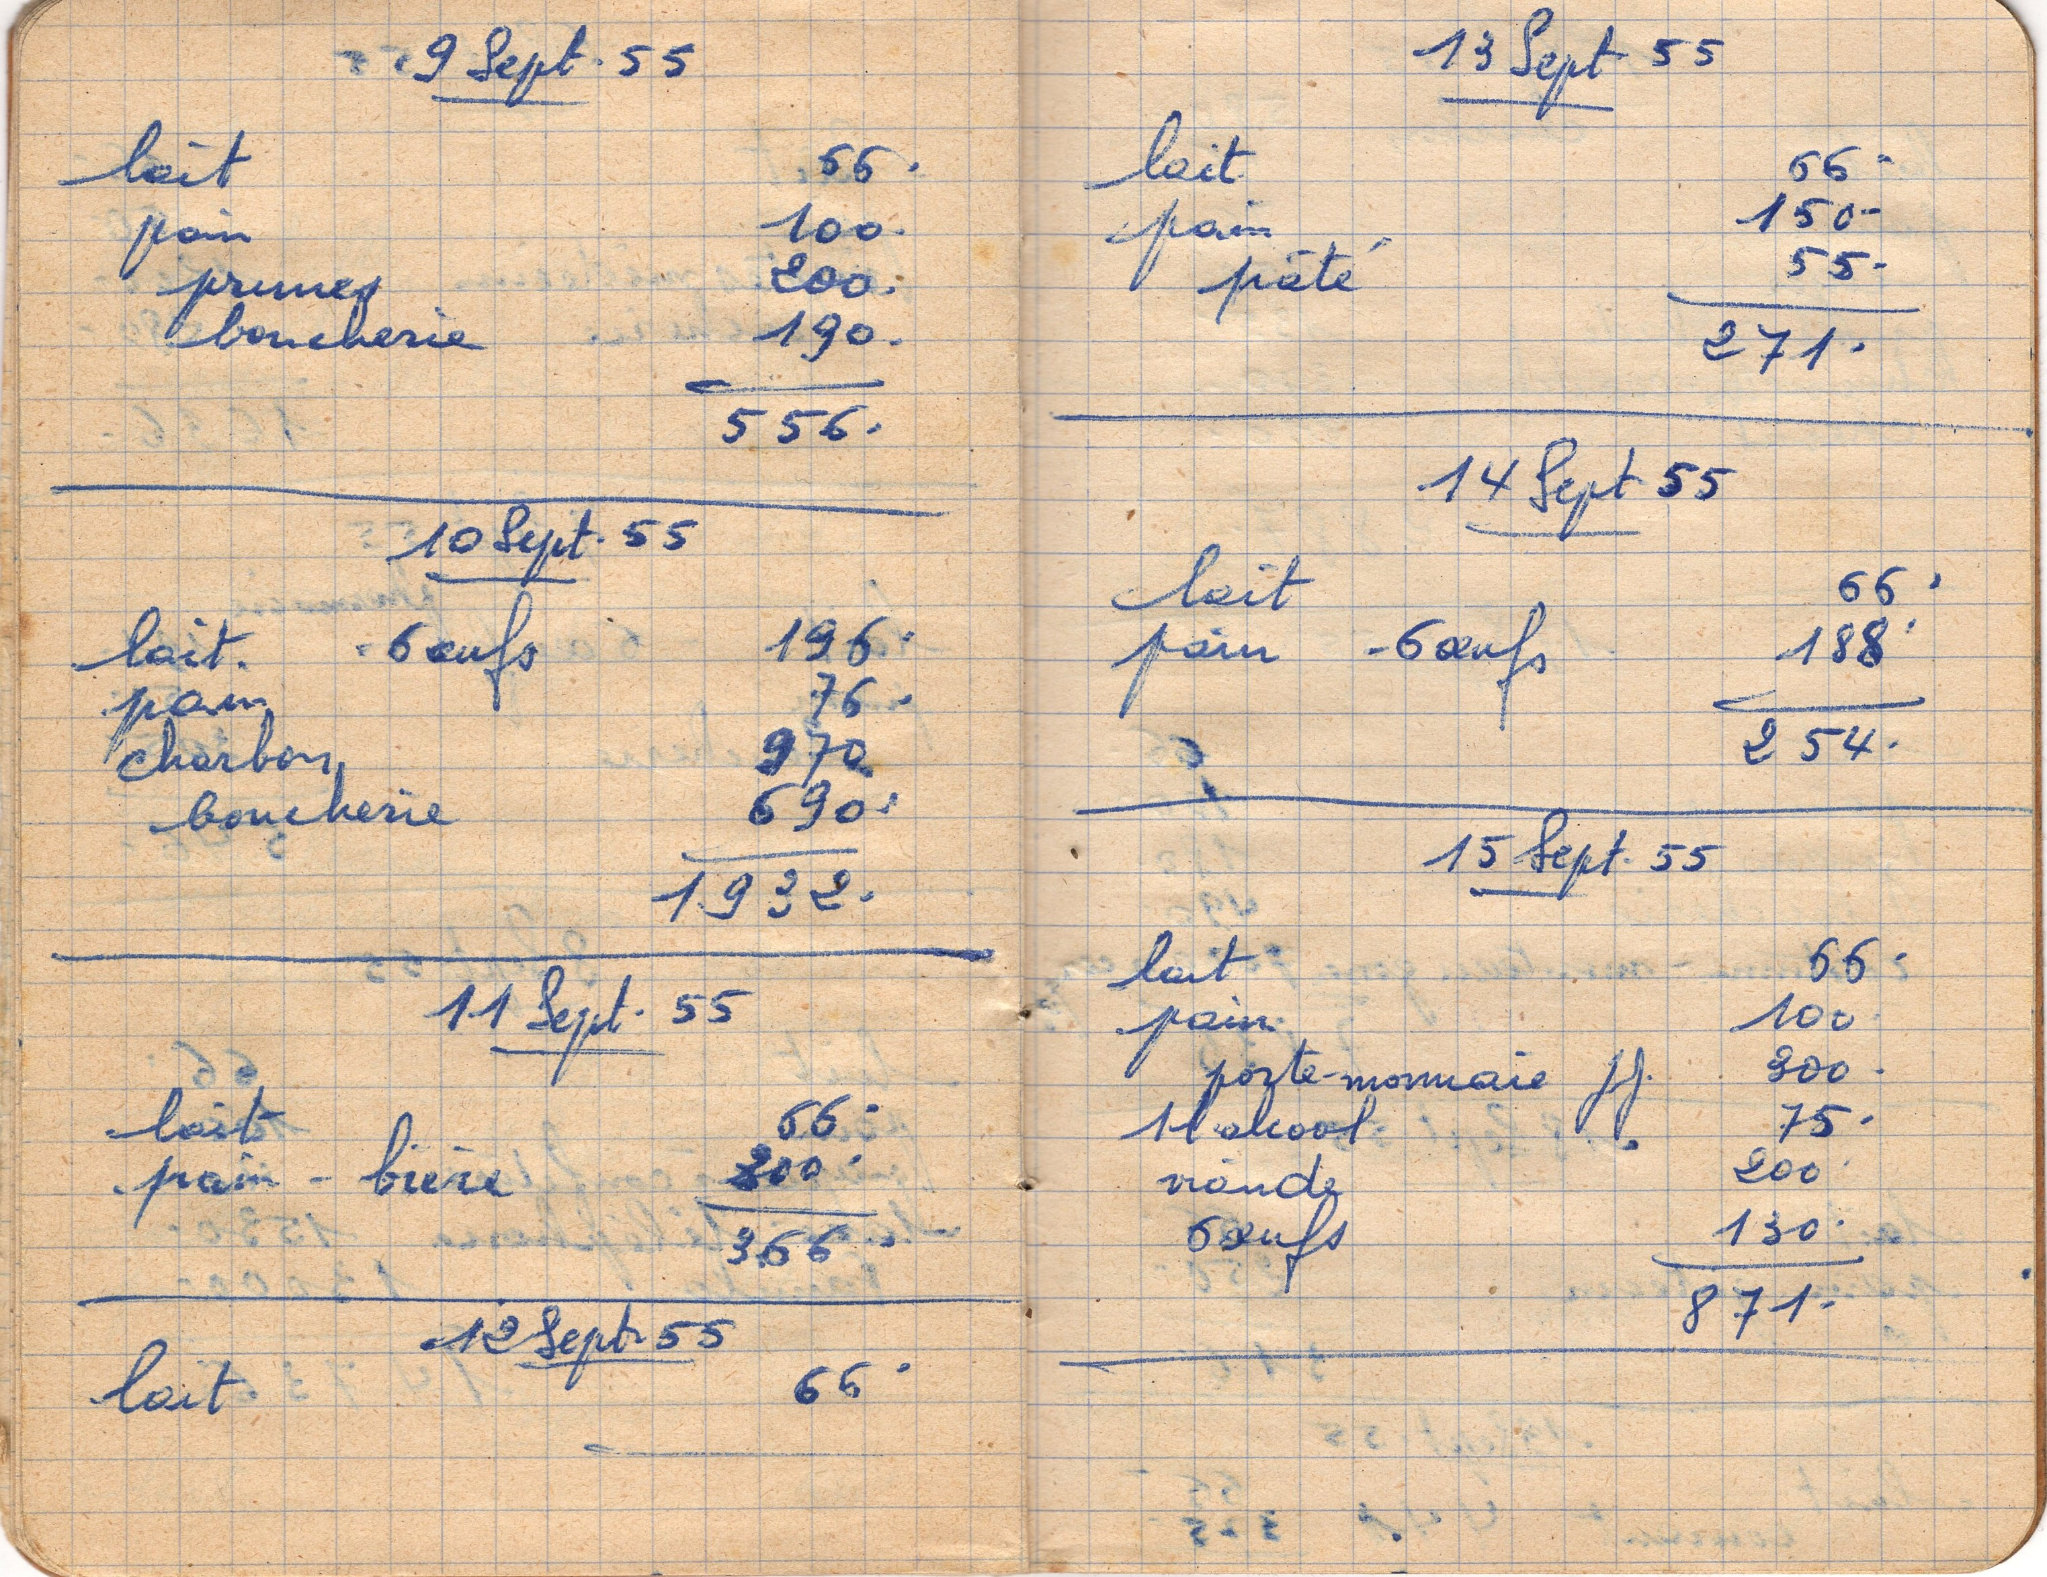 9 Sept. 55
lait 66.
pain 100.
prunes 200.
boucherie 190.
556.
10 Sept. 55
lait. - 6 œufs 196.
pain 76.
charbon 970
boucherie 690.
1932.
11 Sept. 55
lait 66.
pain - bière 300.
366.
12 Sept 55
lait 66.
13 Sept 55
lait 66.
pain 150.
pâté 55.
271.
14 Sept 55
lait 66.
pain - 6 œufs 188.
254.
15 Sept. 55
lait 66.
pain 100.
porte-monnaie jj. 300.
1 l alcool 75.
viande 200.
6 œufs 130.
871.